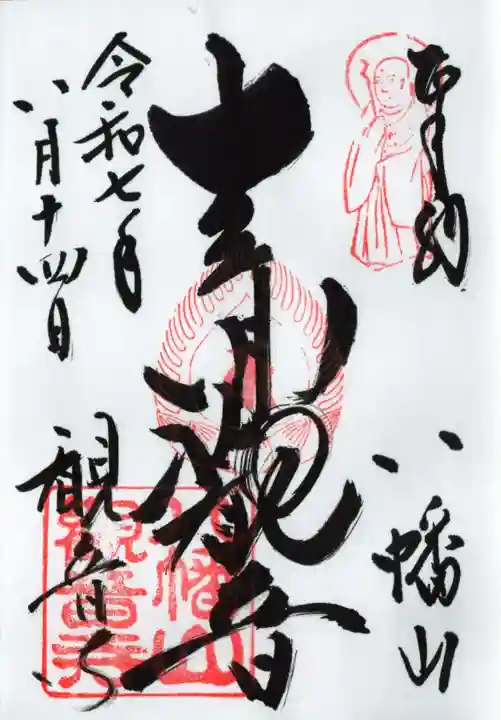 奉納
八幡山
観音
令和七年
八月十四日
観音寺
八幡山
観音寺